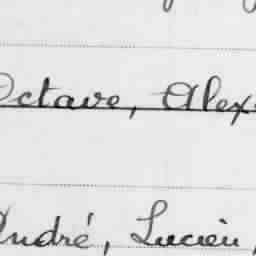 Octave, Alex
André, Lucien,